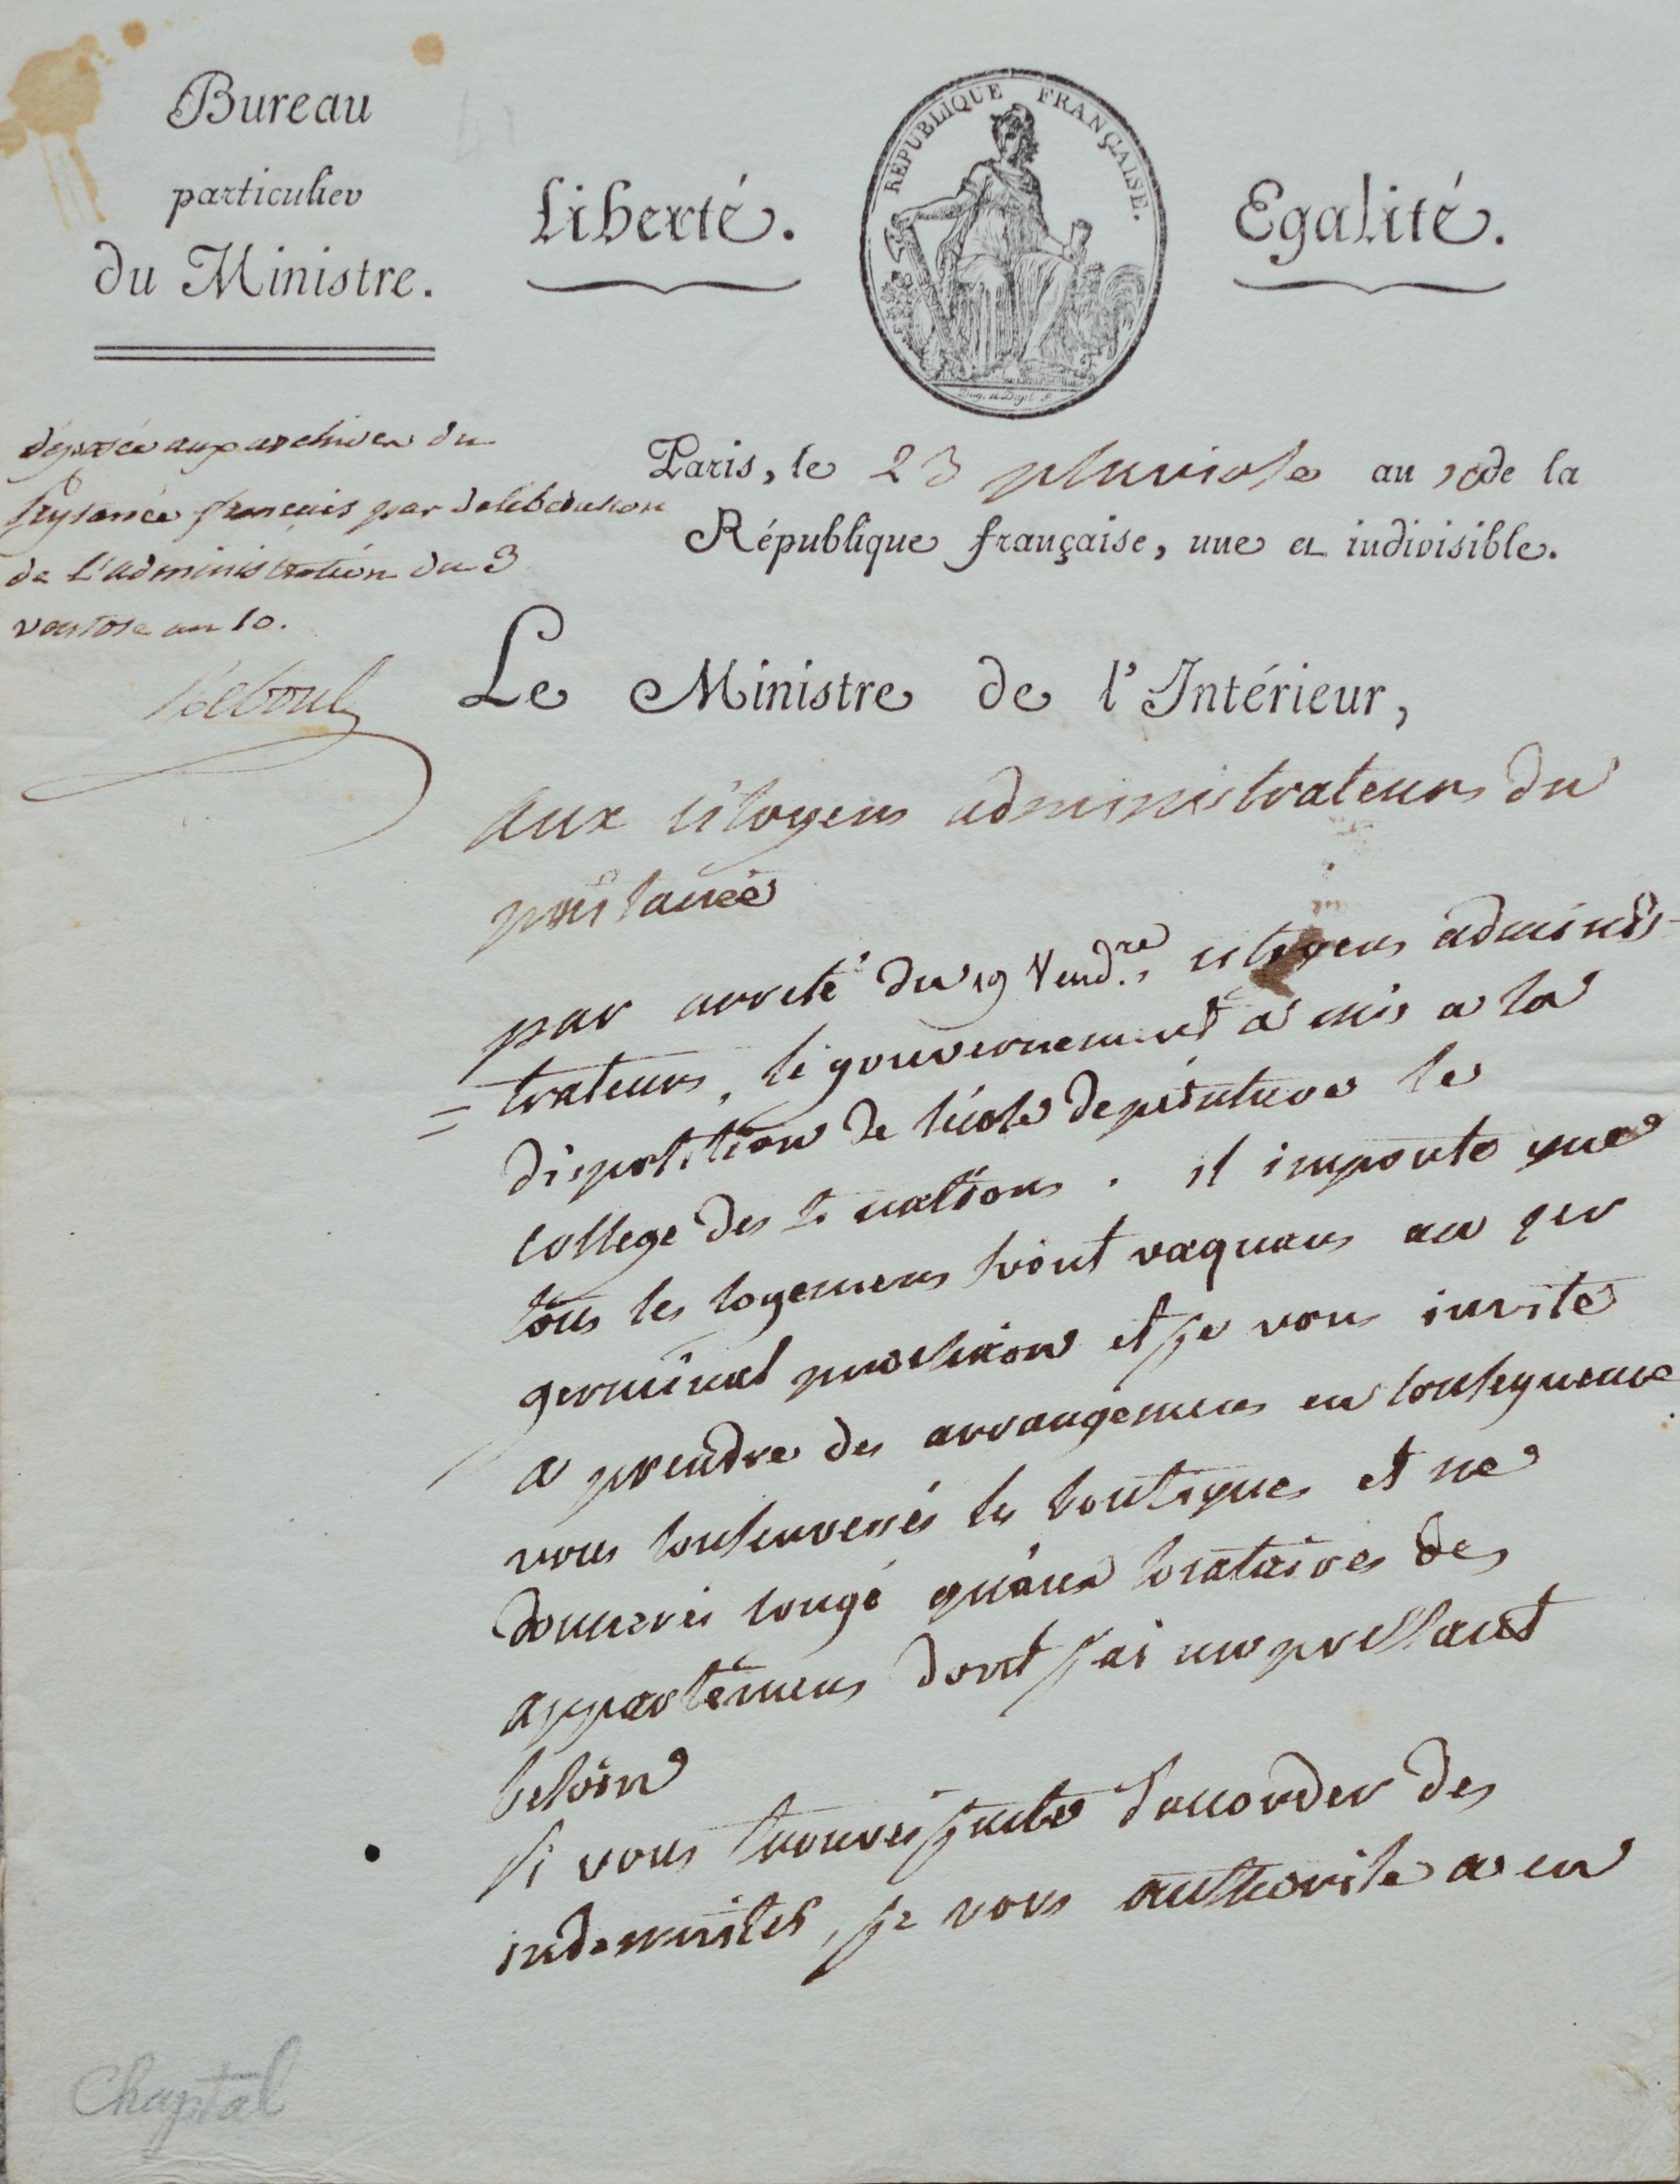 Bureau
particulier
du Ministre.
Liberté.
REPUBLIQUE FRANÇAISE.
Egalité.
déposée aux archives du
Prytanée français par deliberation
de l'administration du 3
ventose an 10.
Reboul
Paris, le 23 pluviose an 10 de la
République française, une et indivisible.
Le Ministre de l'Intérieur,
aux citoyens administrateurs du
pritanée
par arreté du 19 Vend.re, citoyens adminis-
=trateurs, le gouvernement a mis a la
disposition de lécole de peinture le
college des 4 nations. il importe que
tous les logemens soient vaquans au 1er
germinal prochain et je vous invite
a prendre des arrangemens en consequence
vous conserverés les boutiques et ne
donnerés congé qu'aux locataires des
appartemens dont j'ai un pressant
besoin
si vous trouvés juste d'accorder des
indemnités, je vous authorise a en
Chaptal